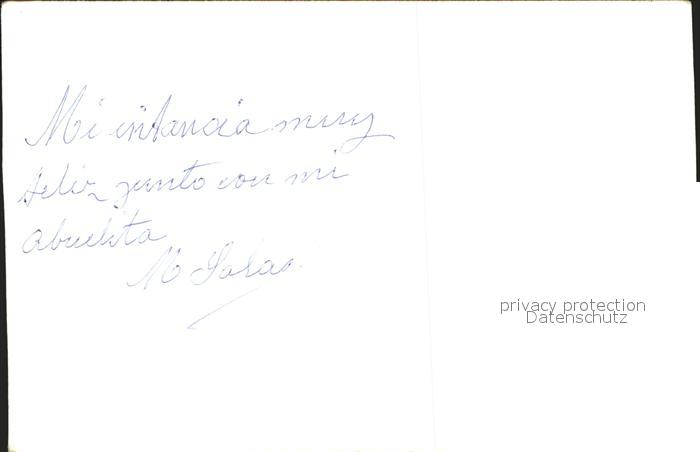 Mi infancia muy
feliz junto con mi
abuelita
M
privacy protection
Datenschutz